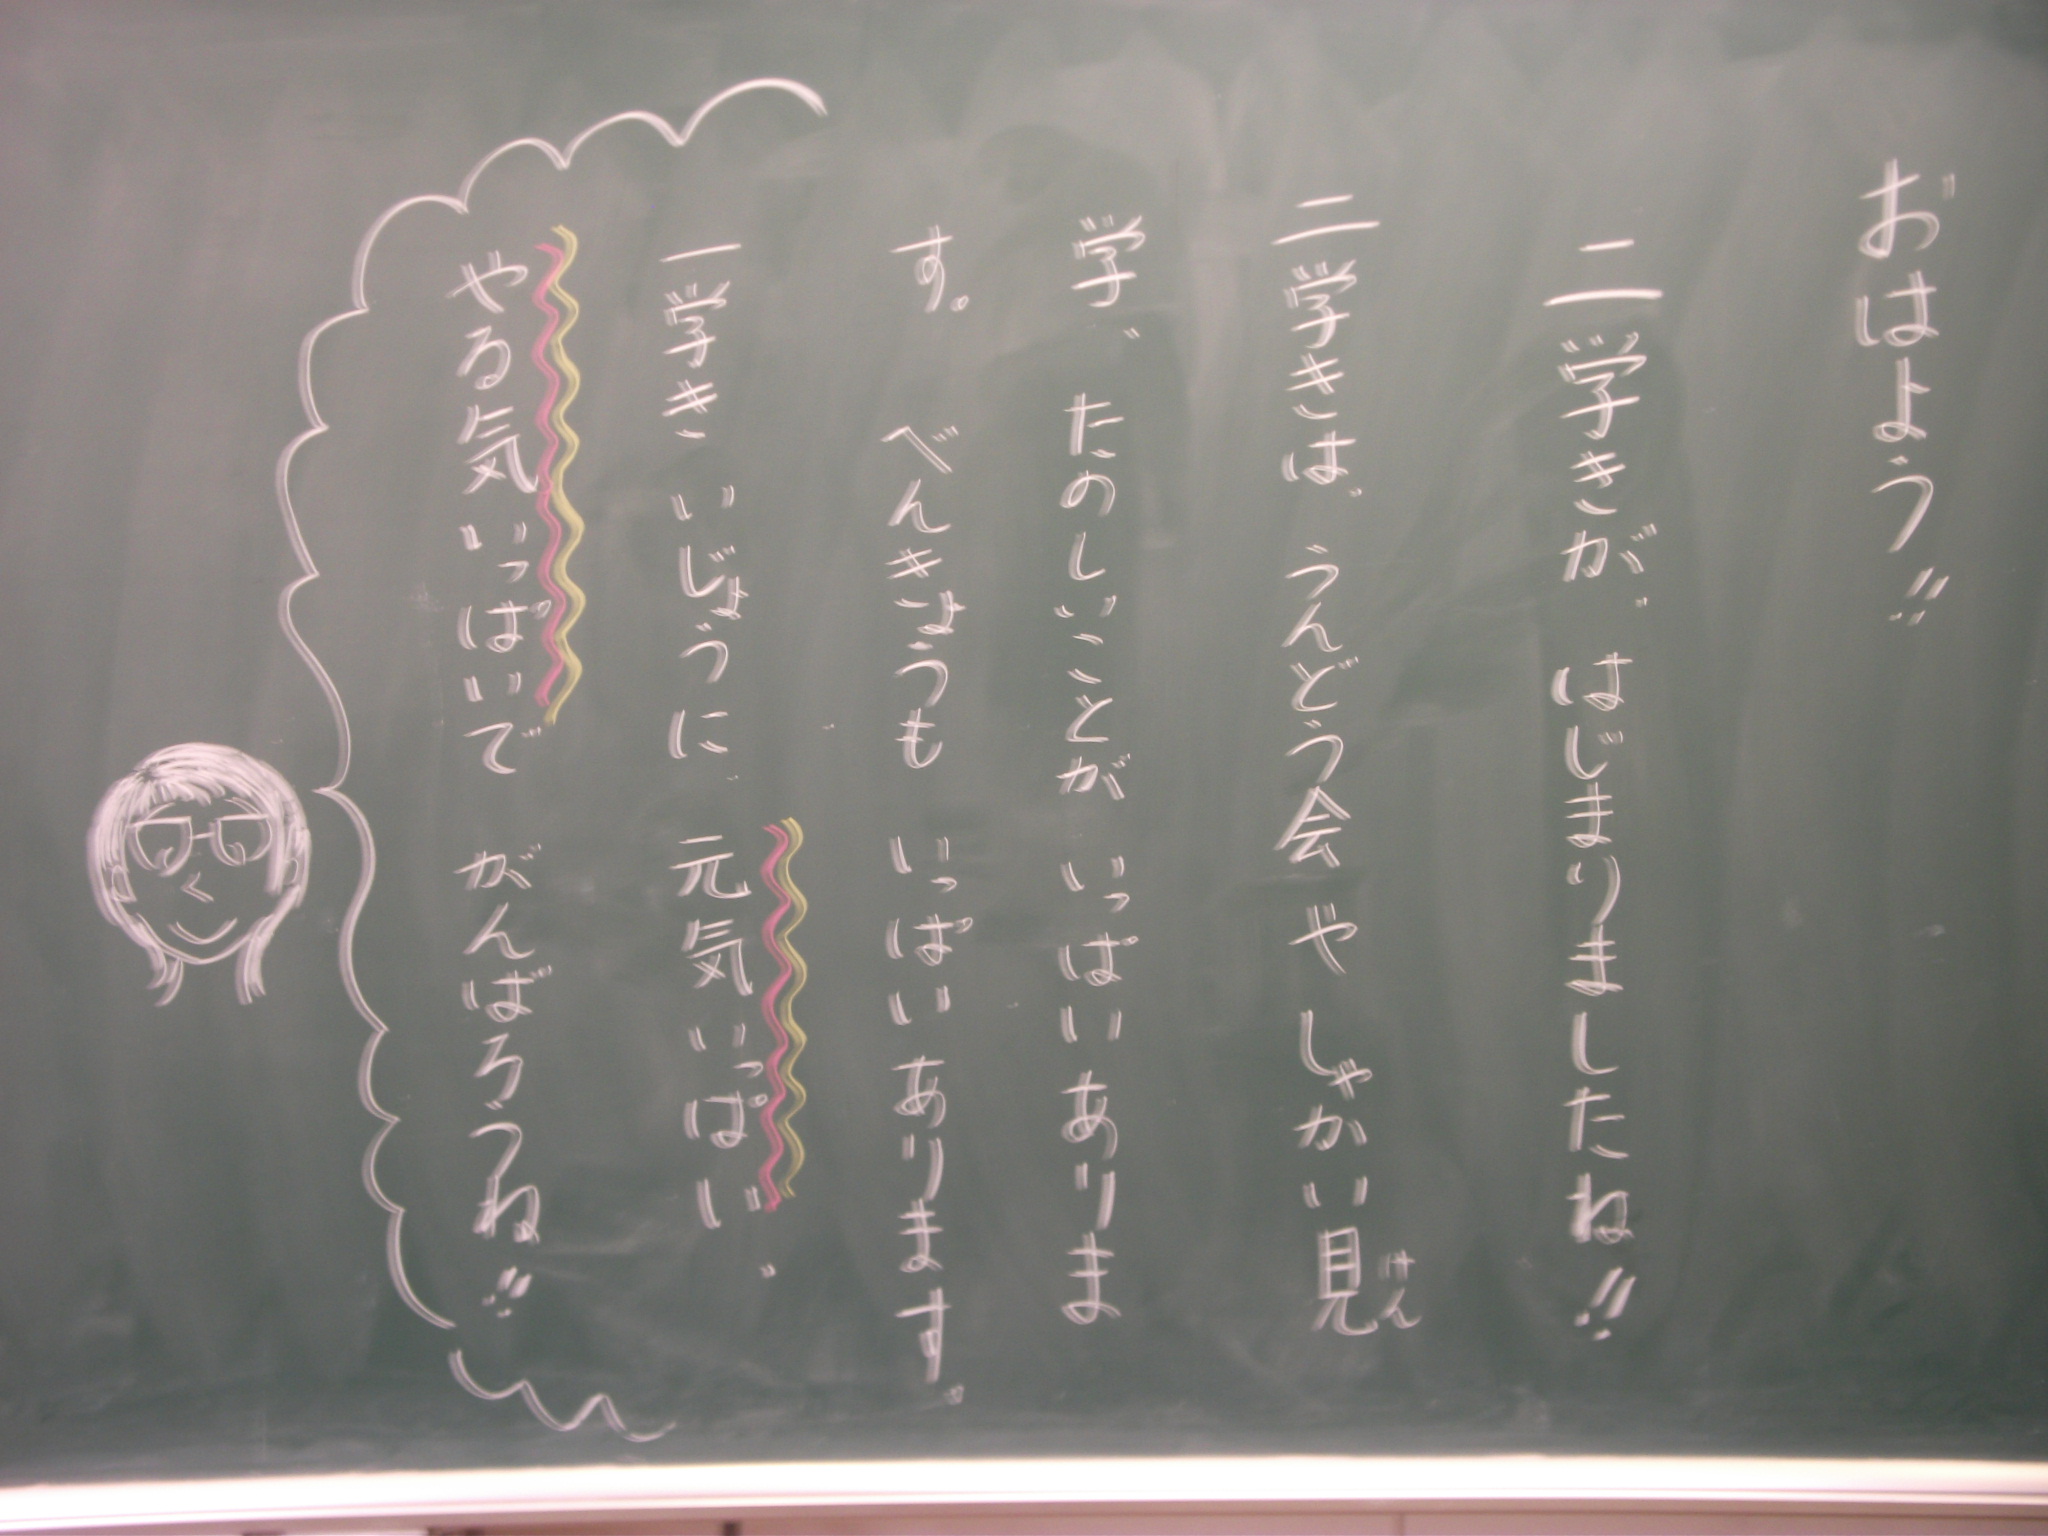 おはよう!!
二学きが、はじまりましたね!!
二学きは、うんどう会や しゃかい見けん
学、たのしいことが いっぱいありま
す。 べんきょうも いっぱいあります。
一学き いじょうに、元気いっぱい、
やる気いっぱいで がんばろうね!!